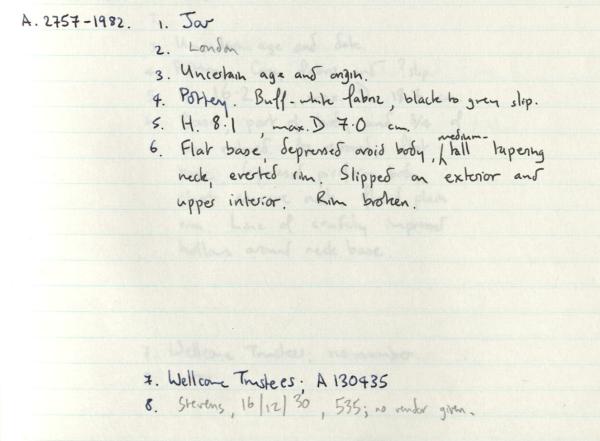 A. 2757-1982. 1. Jar
2. London
3. Uncertain age and origin.
4. Pottery. Buff-white fabric, black to grey slip.
5. H. 8.1, max. D 7.0 cm.
6. Flat base, depressed ovoid body, medium-tall tapering
neck, everted rim. Slipped on exterior and
upper interior. Rim broken.
7. Wellcome Trustees; A 130435
8. Stevens, 16/12/30, 535; no vendor given.